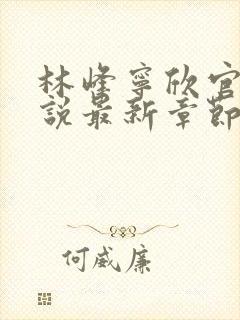 林峰寧欣官
說最新章節
何威廉